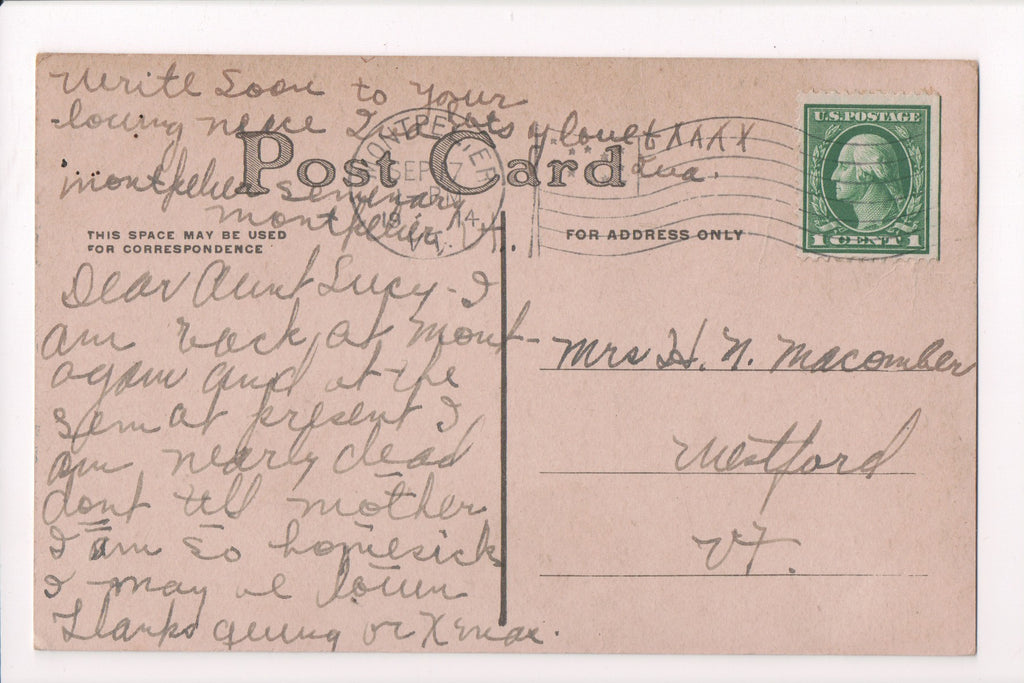 Write Soon to your
loving neice Iva Lots of love & XXXX
Iva.
Montpelier Seminary
Montpelier, Vt.
Post Card
MONTPELIER
SEP 17
1914
VT.
U.S. POSTAGE
1 CENT 1
THIS SPACE MAY BE USED
FOR CORRESPONDENCE
FOR ADDRESS ONLY
Dear Aunt Lucy - I
am back at Mont-
again and at the
Sem at present I
am nearly dead
dont tell mother
I am so homesick
I may be down
Thanks giving or Xmas.
Mrs H. N. Macomber
Westford
Vt.